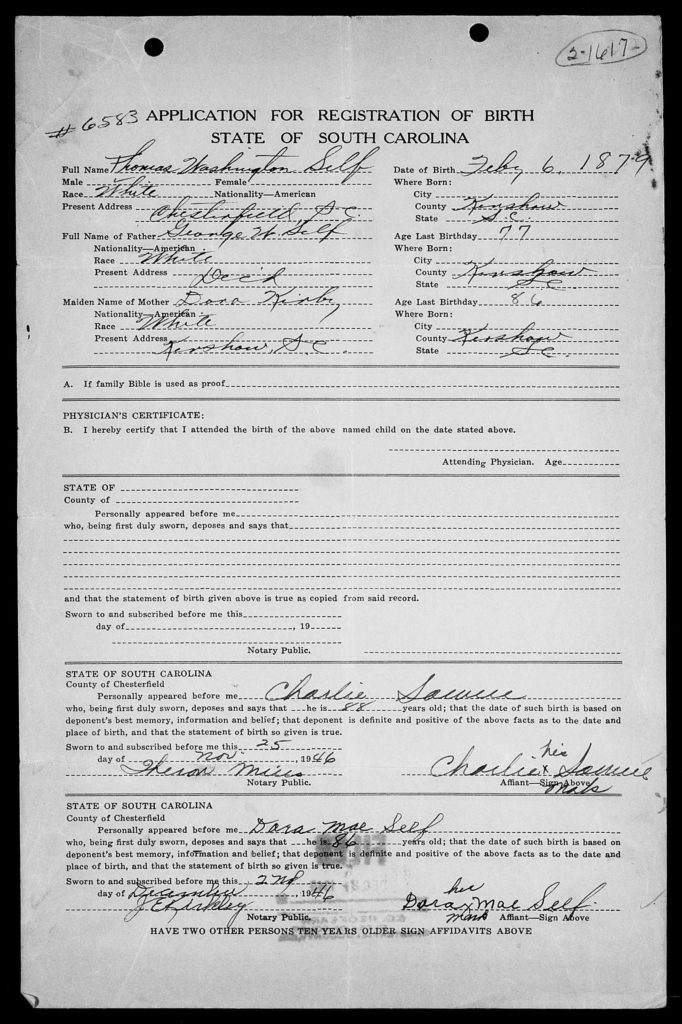 2-1617
#6583
APPLICATION FOR REGISTRATION OF BIRTH
STATE OF SOUTH CAROLINA
Full Name Thomas Washington Self Date of Birth Feby 6, 1879
Male Female Where Born:
Race White Nationality—American City
Present Address Chesterfield, S.C. County Kershaw
State S.C.
Full Name of Father George W Self Age Last Birthday 77
Nationality—American Where Born:
Race White City
Present Address Dec'd County Kershaw
State S.C.
Maiden Name of Mother Dora Kirby Age Last Birthday 86
Nationality—American Where Born:
Race White City
Present Address Kershaw, S.C. County Kershaw
State S.C.
A. If family Bible is used as proof
PHYSICIAN'S CERTIFICATE:
B. I hereby certify that I attended the birth of the above named child on the date stated above.
Attending Physician. Age
STATE OF
County of
Personally appeared before me
who, being first duly sworn, deposes and says that
and that the statement of birth given above is true as copied from said record.
Sworn to and subscribed before me this
day of , 19
Notary Public.
STATE OF SOUTH CAROLINA
County of Chesterfield
Personally appeared before me Charlie
who, being first duly sworn, deposes and says that he is 88 years old; that the date of such birth is based on
deponent's best memory, information and belief; that deponent is definite and positive of the above facts as to the date and
place of birth, and that the statement of birth so given is true.
Sworn to and subscribed before me this 25
day of Nov. , 1946
his
Theron Charlie x
Notary Public. Affiant—Sign Above
mark
STATE OF SOUTH CAROLINA
County of Chesterfield
Personally appeared before me Dora Mae Self
who, being first duly sworn, deposes and says that he is 86 years old; that the date of such birth is based on
deponent's best memory, information and belief; that deponent is definite and positive of the above facts as to the date and
place of birth, and that the statement of birth so given is true.
Sworn to and subscribed before me this 2nd
day of December , 1946
her
Dora x Mae Self
mark
Notary Public. Affiant—Sign Above
HAVE TWO OTHER PERSONS TEN YEARS OLDER SIGN AFFIDAVITS ABOVE